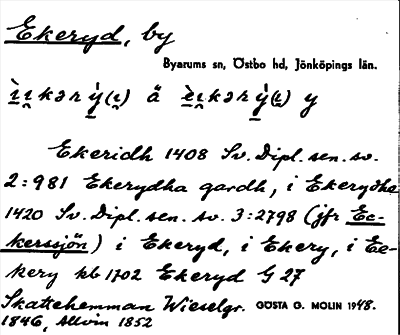 Ekeryd, by
Byarums sn, Östbo hd, Jönköpings län.
å y
Ekeridh 1408 Sv. Dipl. sen. sv.
2:981 Ekerydha gardh, i Ekerydha
1420 Sv. Dipl. sen. sv. 3:2798 (jfr Ec-
kerssjön) i Ekeryd, i Ekery, i Ee-
kery kb 1702 Ekeryd G 27
Skattehemman Wieselgr. GÖSTA G. MOLIN 1948.
1846, Allvin 1852